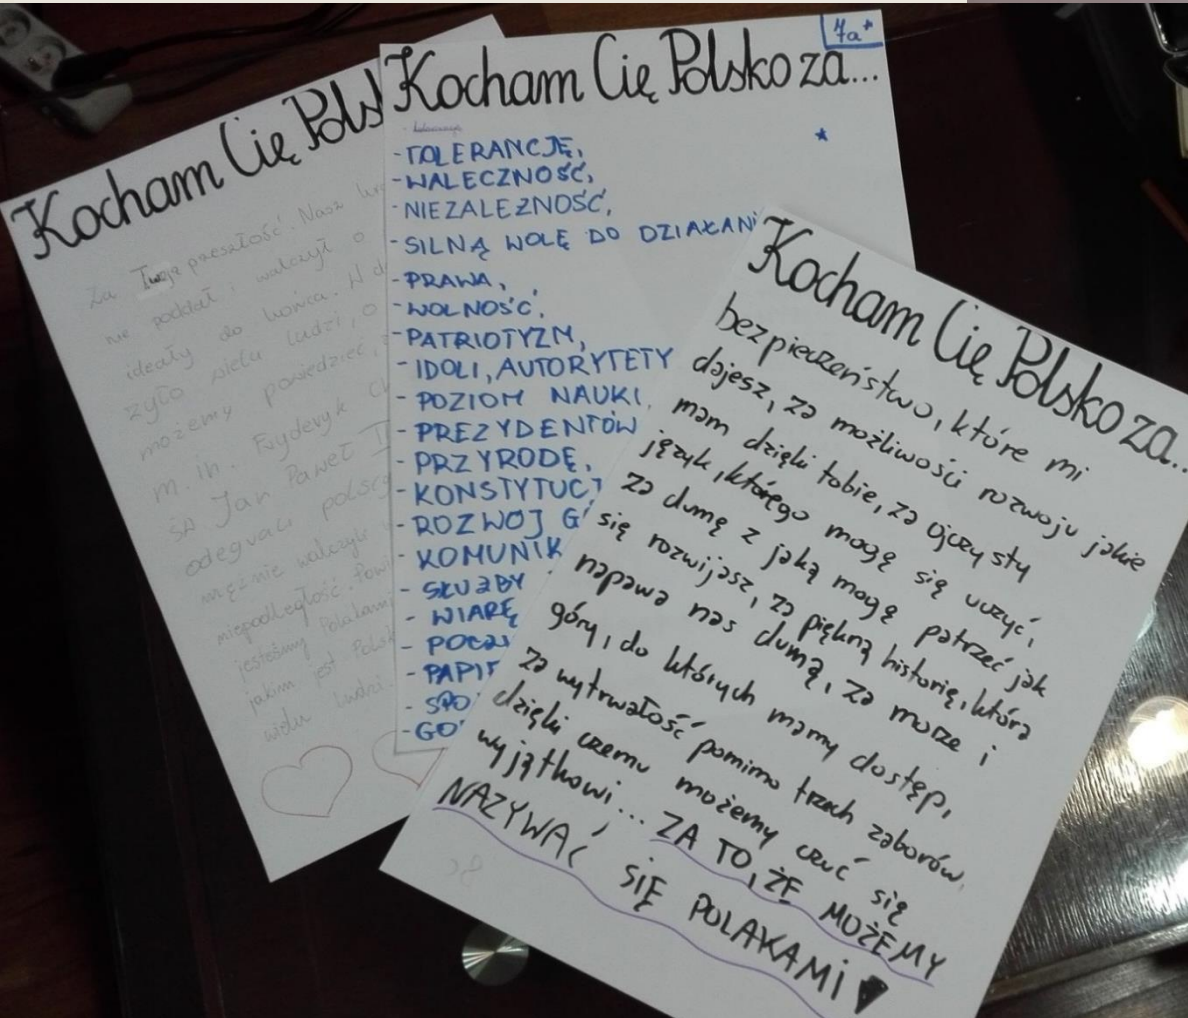 Kocham Cię Pols
Za Twoją przeszłość. Nasz
nie poddał i walczył o
ideały do końca. W
żyło wielu ludzi, o
możemy powiedzieć,
m. in. Fryderyk
św Jan Paweł II
odegrali polscy
mężnie walczyli
niepodległość.
jesteśmy Polakami
jakim jest Polsk
wielu ludzi.
7a*
Kocham Cię Polsko za...
- tolerancję
- TOLERANCJĘ,
- WALECZNOŚĆ,
- NIEZALEŻNOŚĆ,
- SILNĄ WOLĘ DO DZIAŁANI
- PRAWA,
- WOLNOŚĆ,
- PATRIOTYZM,
- IDOLI, AUTORYTETY
- POZIOM NAUKI,
- PREZYDENTÓW
- PRZYRODĘ,
- KONSTYTUC
- ROZWÓJ G
- KOMUNIK
- SŁUŻBY
- WIARĘ,
- POCZ
- PAPIE
- SPO
- GO
Kocham Cię Polsko za...
bezpieczeństwo, które mi
dajesz, za możliwości rozwoju jakie
mam dzięki tobie, za ojczysty
język, którego mogę się uczyć,
za dumę z jaką mogę patrzeć jak
się rozwijasz, za piękną historię, która
napawa nas dumą, za morze i
góry, do których mamy dostęp,
za wytrwałość pomimo trzech zaborów,
dzięki czemu możemy czuć się
wyjątkowi... ZA TO, ŻE MOŻEMY
NAZYWAĆ SIĘ POLAKAMI